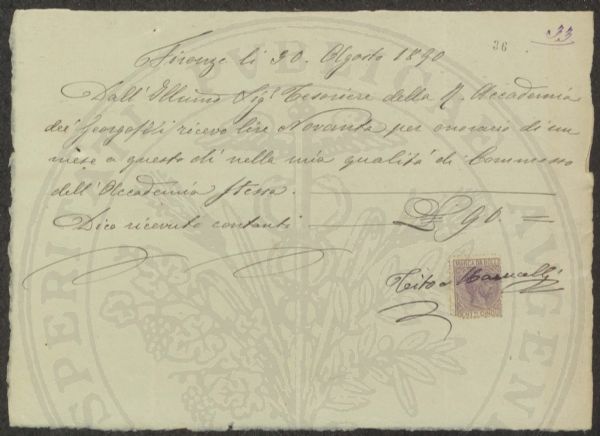 36
33
Firenze li 30. Agosto 1890
Dall' Illmo Sigr Tesoriere della R. Accademia
dei Georgofili ricevo lire Novanta per onorario di un
mese a questo dì nella mia qualità di Commesso
dell' Accademia stessa.
Dico ricevute contanti £ 90. =
Tito
MARCA DA BOLLO
PROSPERITATI PUBLICAE AUGENDAE